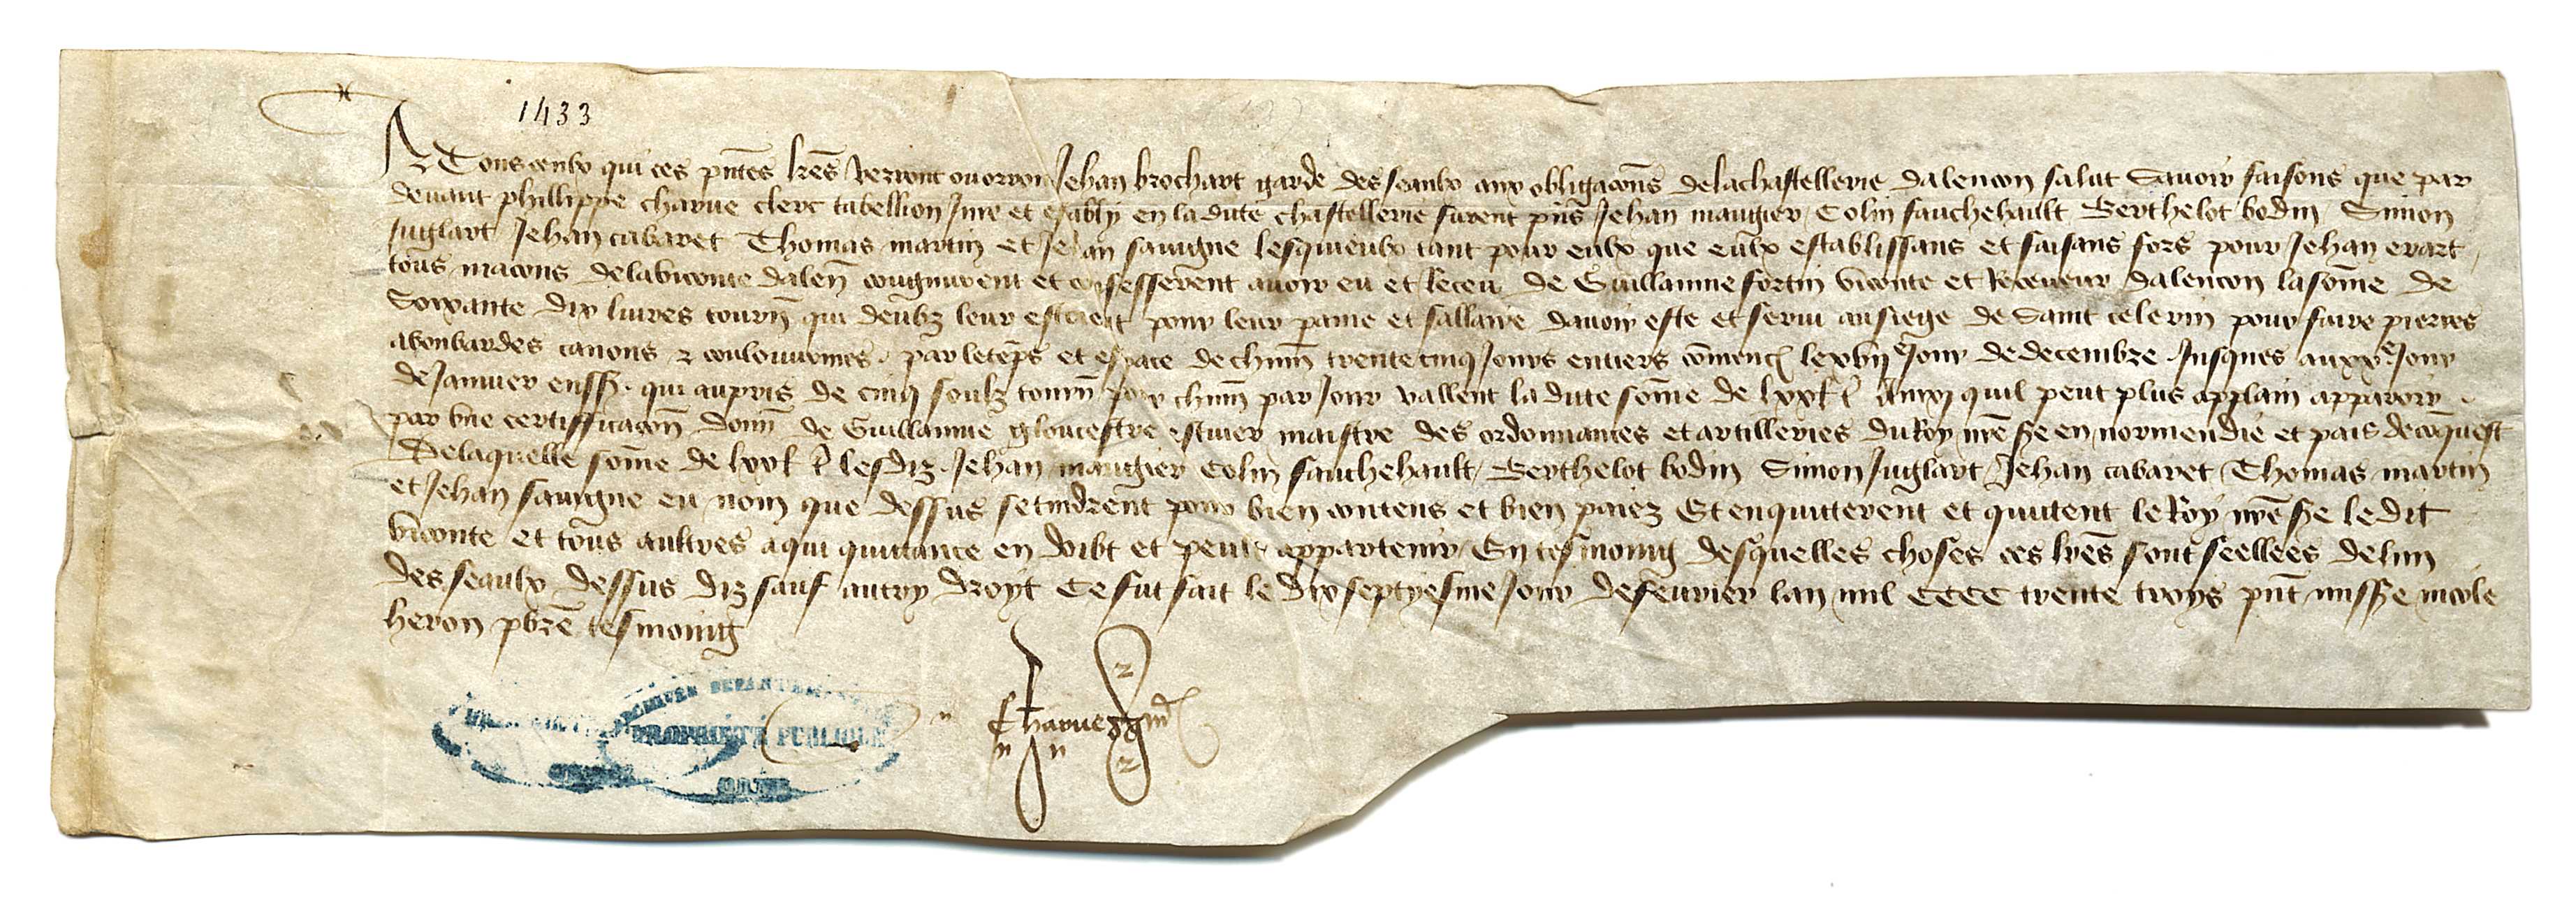 1433
A Tous ceulx qui ces pntes lres verront ou orront Jehan brochart garde des seaulx aux obligacons de la chastellerie dalencon salut Savoir faisons que par
devant phillippe charue clerc tabellion Jure et estably en la dite chastellerie furent pns Jehan maugier / Colin fauchehault Berthelot bodin / Simon
Juglart Jehan cabaret Thomas martin et Jehan sauigne lesquieulx tant pour eulx que eulx establissans et faisans fors pour Jehan erart /
tous macons de la viconte dalen congnurent et confesserent avoir eu et Receu de Guillaume fortin viconte et Receveur dalencon la some de
Soixante dix livres tourn qui deubz leur estoient pour leur paine et sallaire davoir este et servi au siege de Saint celerin pour faire pierres
a bonbardes canons & coulouvrines . par le temps et espace de chun trente cinq Jours entiers comenc le xvije Jour de decembre . Jusques au xxe Jour
de Janvier enss . qui au pris de cinq soulz tourn pour chun par Jour vallent la dite some de lxxl t Ainxi quil peut plus applain apparoir
par une certifficacon donn de Guillaume gloucestre escuier maistre des ordonnances et artilleries du Roy nre sre en normendie et pais de conquest
De laquelle some de lxxl t lesdiz Jehan maugier Colin fauchehault / Berthelot bodin Simon Juglart / Jehan cabaret / Thomas martin
et Jehan sauigne en nom que dessus se tindrent pour bien contens et bien paiez Et en quitterent et quittent le Roy nre sre le dit
viconte et tous aultres a qui quittance en doibt et peut appartenir / En tesmoing desquelles choses ces lres sont seellees de lun
des seaulx dessus diz sauf autry droyt Ce fut fait le dix septyesme Jour de fevrier lan mil CCCC trente troys pnt missre nicole
heron pbre tesmoing
Charue
PROPRIÉTÉ PUBLIQUE